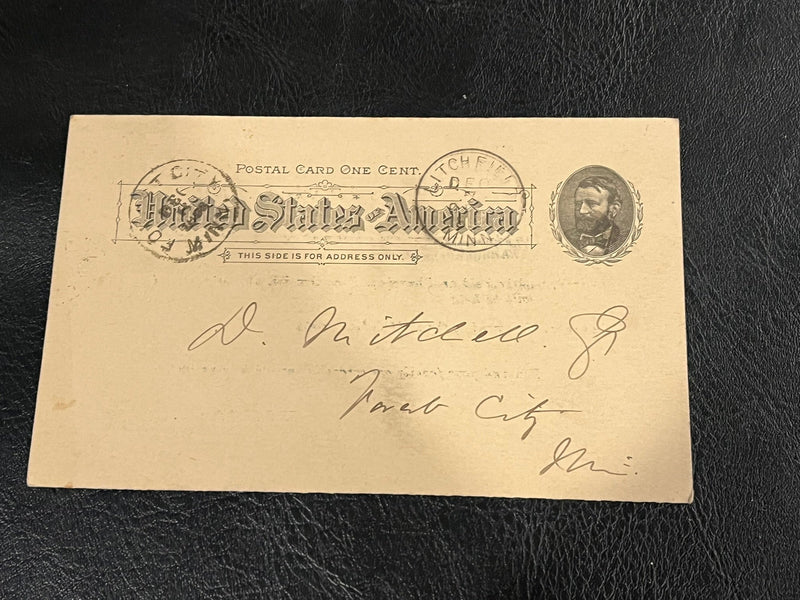 POSTAL CARD ONE CENT.
United States of America
THIS SIDE IS FOR ADDRESS ONLY.
LITCHFIELD
DEC
MINN
FOREST CITY
MINN
D. Mitchell Jr
Forest City
Min.